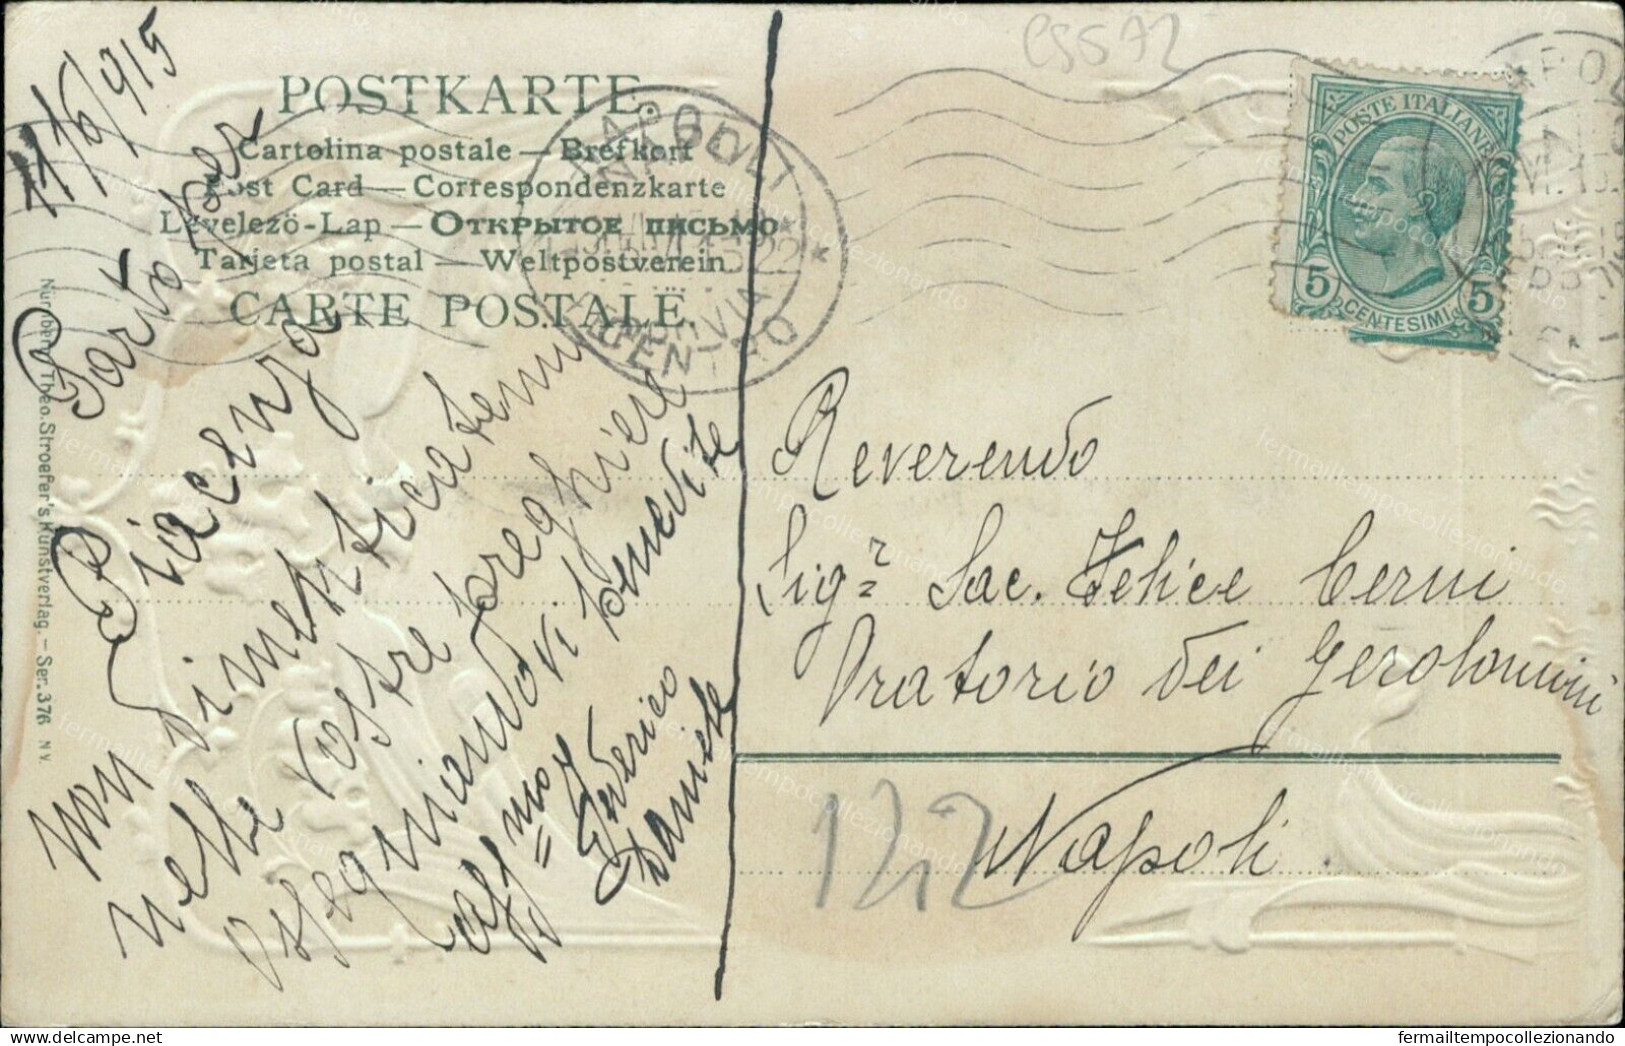 11/6/915
CSS72
POSTKARTE.
Cartolina postale — Brefkort
Post Card — Correspondenzkarte
Levelező-Lap — Открытое письмо
Tarjeta postal — Weltpostverein
CARTE POSTALE.
NAPOLI
POSTE ITALIANE
5 CENTESIMI 5
Parto per
Piacenza
Non dimenticatemi
nelle vostre preghiere
benedite
Federico
Daniele
Reverendo
Sigr Sac. Felice Cerni
Oratorio dei Gerolomini
Napoli
122
Nürnberg Theo. Stroefer's Kunstverlag. – Ser. 376 N V.
fermailtempocollezionando